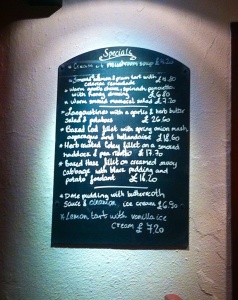 Specials
* Cream of mushroom soup £4.20
* Smoked salmon & prawn tart with
£5.80
* warm goats cheese, spinach,
with honey dressing £6.20
* warm smoked mackerel salad £7.20
* Langoustines with a garlic & herb butter
salad & potatoes £26.50
* Baked Cod fillet with spring onion mash,
asparagus and hollandaise £18.60
* Herb coated Coley fillet on a smoked
haddock & pea risotto £17.70
* Baked Hake fillet on creamed savoy
cabbage with black pudding and
potato fondant £16.20
* Date pudding with butterscotch
sauce & cinnamon ice cream £6.90
* Lemon tart with vanilla ice
cream £7.20